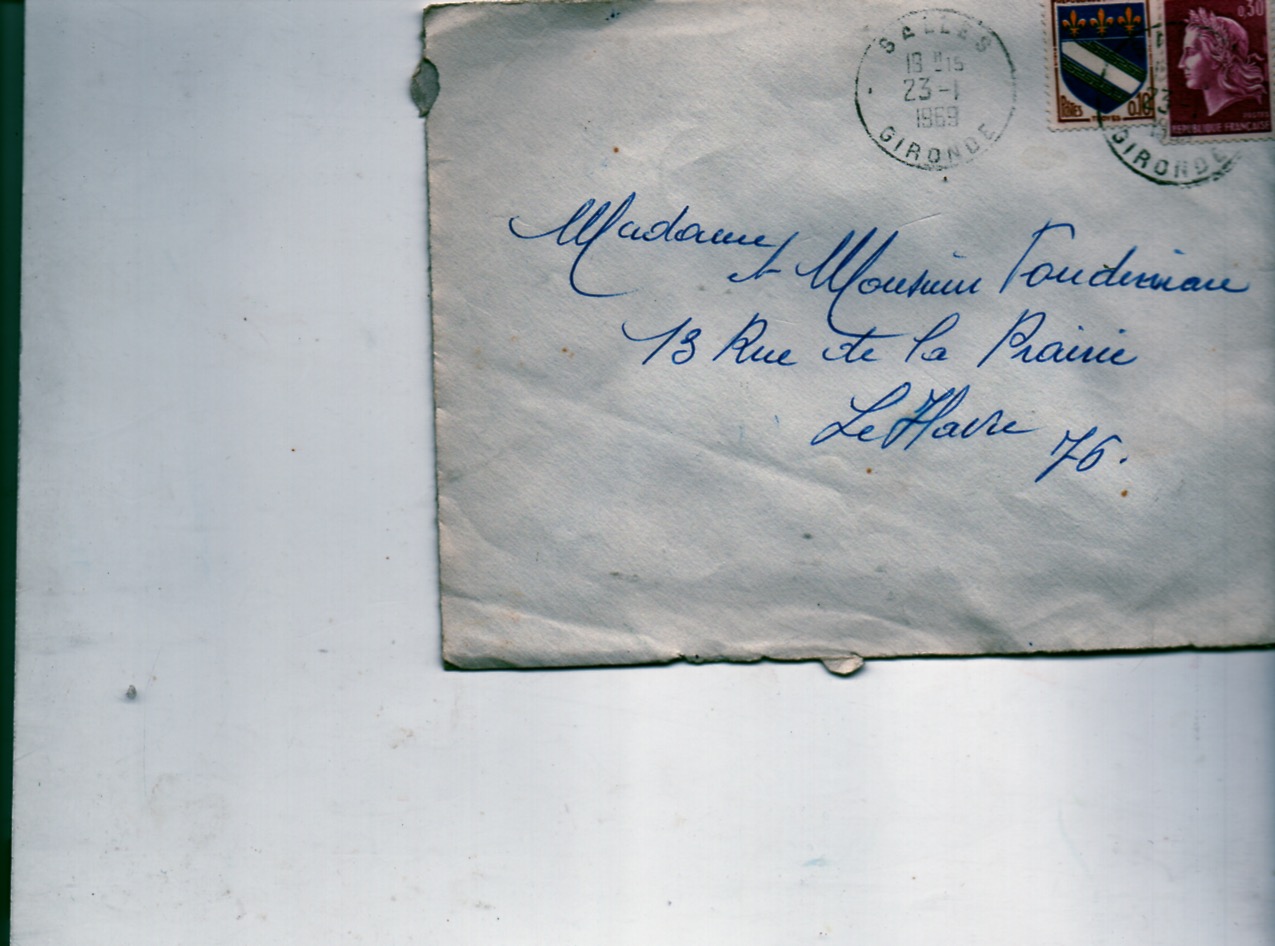 SALLES
18 H15
23-1
1969
GIRONDE
0,10
0,30
REPUBLIQUE FRANÇAISE
GIRONDE
Madame
et Monsieur
13 Rue de la Prairie
Le Havre 76.